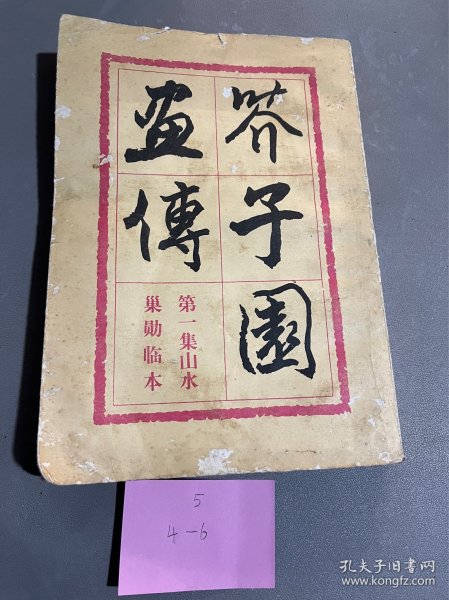 芥子園
畫傳
第一集山水
巢勛临本
5
4-6
孔夫子旧书网
www.kongfz.com